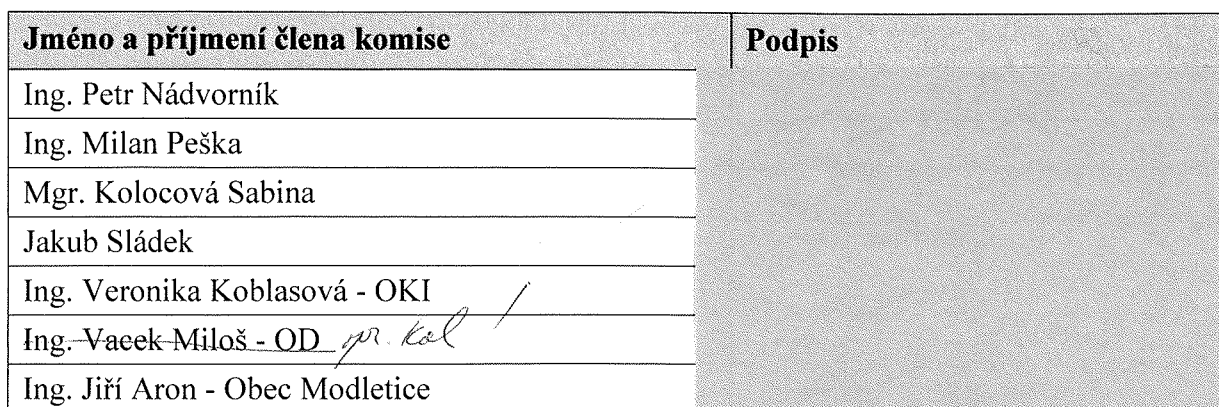 Jméno a příjmení člena komise Podpis
Ing. Petr Nádvorník
Ing. Milan Peška
Mgr. Kolocová Sabina
Jakub Sládek
Ing. Veronika Koblasová - OKI
Ing. Vacek Miloš - OD
Ing. Jiří Aron - Obec Modletice